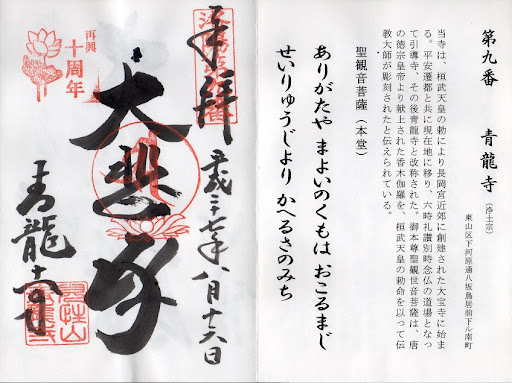 第九番　青龍寺（浄土宗）
東山区下河原通八坂鳥居前下ル南町
当寺は、桓武天皇の勅により長岡宮近郊に創建された大宝寺に始ま
る。平安遷都と共に現在地に移り、六時礼讃別時念仏の道場となっ
て引導寺、その後青龍寺と改称された。御本尊聖観世音菩薩は、唐
の徳宗皇帝より献上された香木伽羅を、桓武天皇の勅命を以って伝
教大師が彫刻されたと伝えられている。
聖観音菩薩（本堂）
ありがたや まよいのくもは おこるまじ
せいりゅうじより かへるさのみち
奉拝
平成二十七年八月十六日
大悲殿
再興
十周年
青龍寺